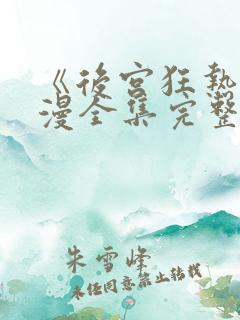 《後宮狂執
漫全集完整
朱雪峰
未经同意禁止转载